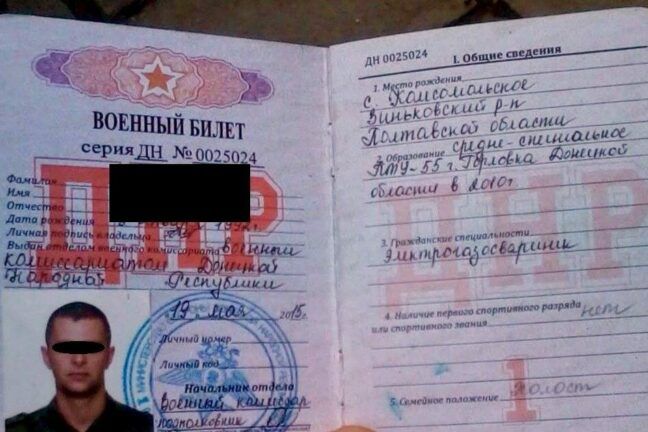 ВОЕННЫЙ БИЛЕТ
серия ДН № 0025024
ДНР
Фамилия
Имя
Отчество
Дата рождения
Личная подпись владельца
Выдан отделом военного комиссариата Военным
комиссариатом Донецкой
Народной Республики
19 мая 2015г.
Личный номер
Личный код
Начальник отдела
Военный комиссар
подполковник
ДН 0025024
I. Общие сведения
1. Место рождения
с. Комсомольское
Зиньковский р-н
Полтавской области
2. Образование средне-специальное
ПТУ-55 г. Горловка Донецкой
области в 2010г
3. Гражданские специальности
Электрогазосварщик
ДНР
4. Наличие первого спортивного разряда нет
или спортивного звания
1
5. Семейное положение холост